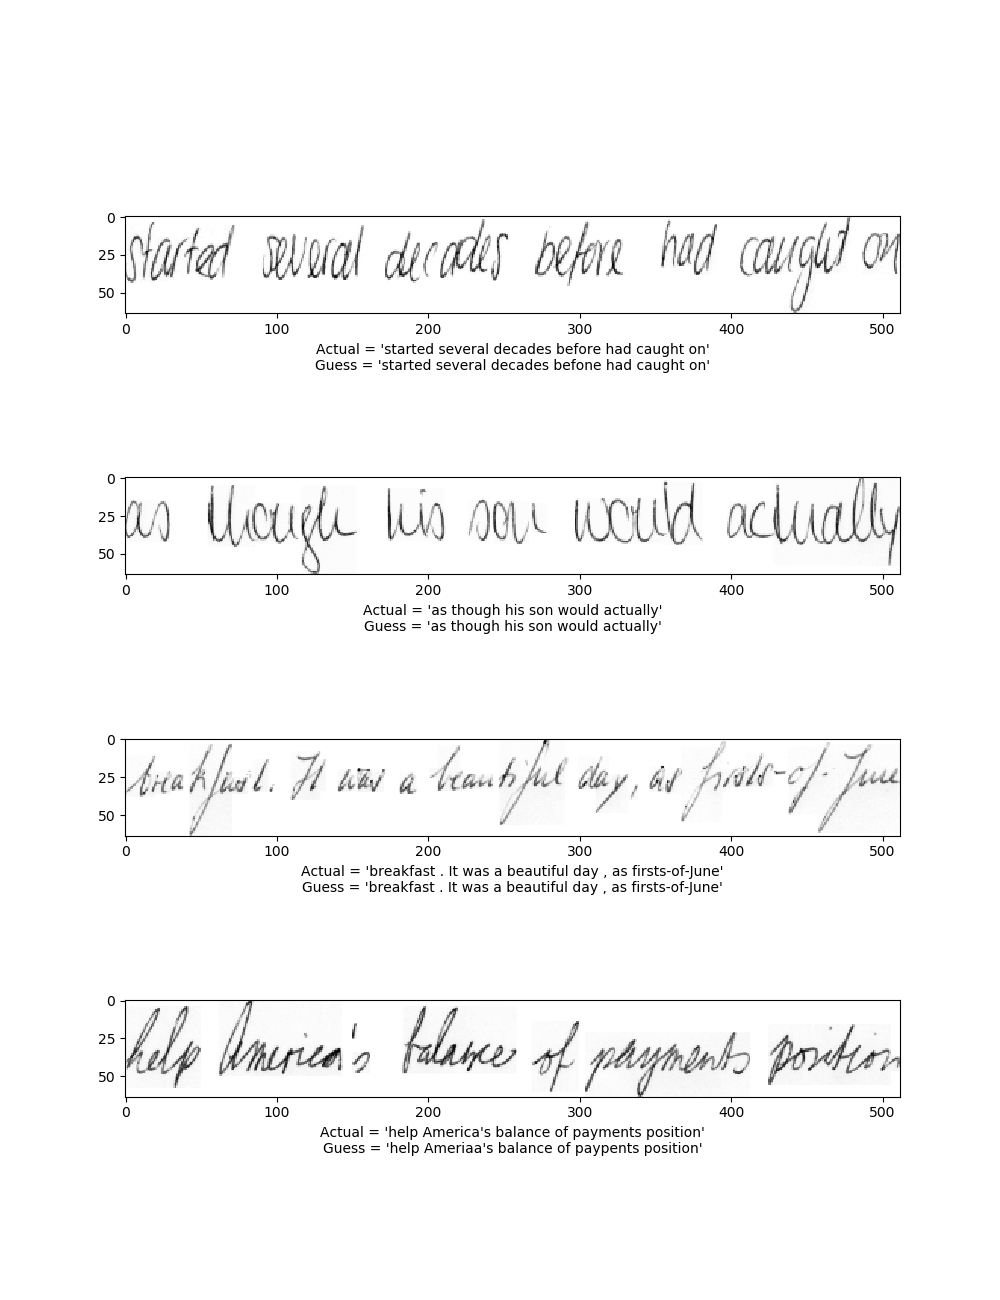 0
25
50
started several decades before had caught on
0 100 200 300 400 500
Actual = 'started several decades before had caught on'
Guess = 'started several decades befone had caught on'
0
25
50
as though his son would actually
0 100 200 300 400 500
Actual = 'as though his son would actually'
Guess = 'as though his son would actually'
0
25
50
breakfast. It was a beautiful day, as firsts-of-June
0 100 200 300 400 500
Actual = 'breakfast . It was a beautiful day , as firsts-of-June'
Guess = 'breakfast . It was a beautiful day , as firsts-of-June'
0
25
50
help America's balance of payments position
0 100 200 300 400 500
Actual = 'help America's balance of payments position'
Guess = 'help Ameriaa's balance of paypents position'